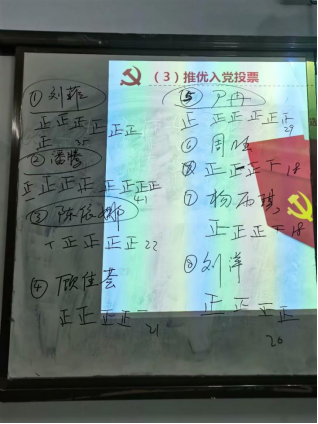 （3）推优入党投票
① 刘
正正正正正正
正 35
② 潘腾
正正正正正正正正 41
③ 陈依娜
正正正正 22
④ 欣佳荟
正正正正一 21
⑤ 尹冉
正正正正正 29
⑥ 周
正正正 18
⑦ 杨雨琪
正正正 18
⑧ 刘洋
正正正正
20